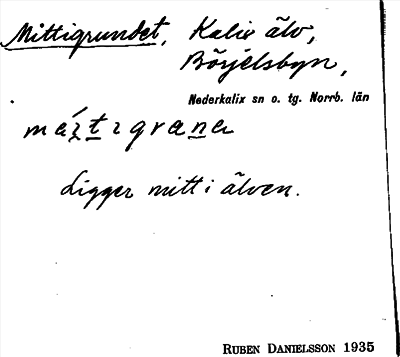 Mittigrundet, Kalix älv,
Börjelsbyn,
Nederkalix sn o. tg. Norrb. län
Ligger mitt i älven.
RUBEN DANIELSSON 1935